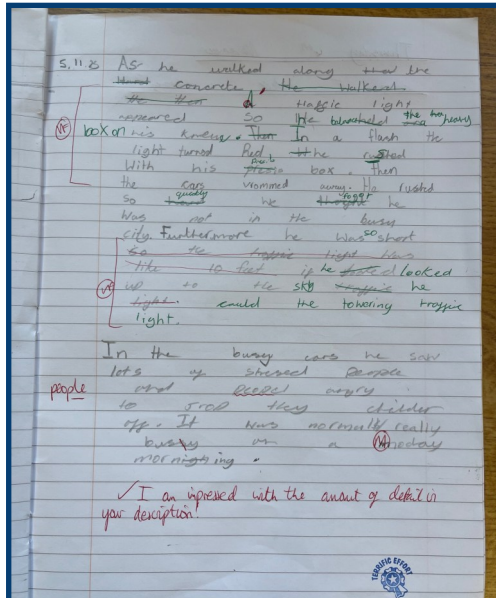 5.11.
As he walked along the
concrete.
traffic light
appeared so He balanced the two heavy
box on his knees. In a flash the
light turned Red he rusted
With his box. then
the cars vrommed away. He rusted
so quickly he he
was not in the busy
city. Furthermore he was so short
So the traffic light was
like 10 feet if he looked
up to the sky he
could the towering traffic
light.
In the busy cars he saw
lot's of stresed people
people
and angry
to drop they childer
off. It was normally really
busy on a Moneday
morning.
✓ I am impressed with the amount of detail in
your description!
TERRIFIC EFFORT